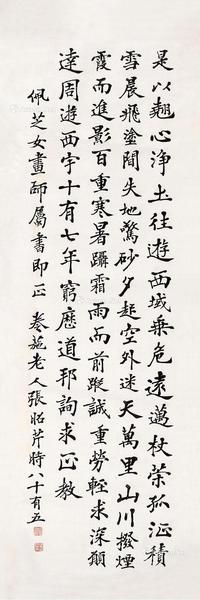 是以翹心淨土往遊西域乗危遠邁杖策孤征積
雪晨飛塗間失地驚砂夕起空外迷天萬里山川撥煙
霞而進影百重寒暑躡霜雨而前蹤誠重勞輕求深願
達周遊西宇十有七年窮歷道邦詢求正教
佩芝女畫師屬書即正 養菴老人張昭芹時八十有五